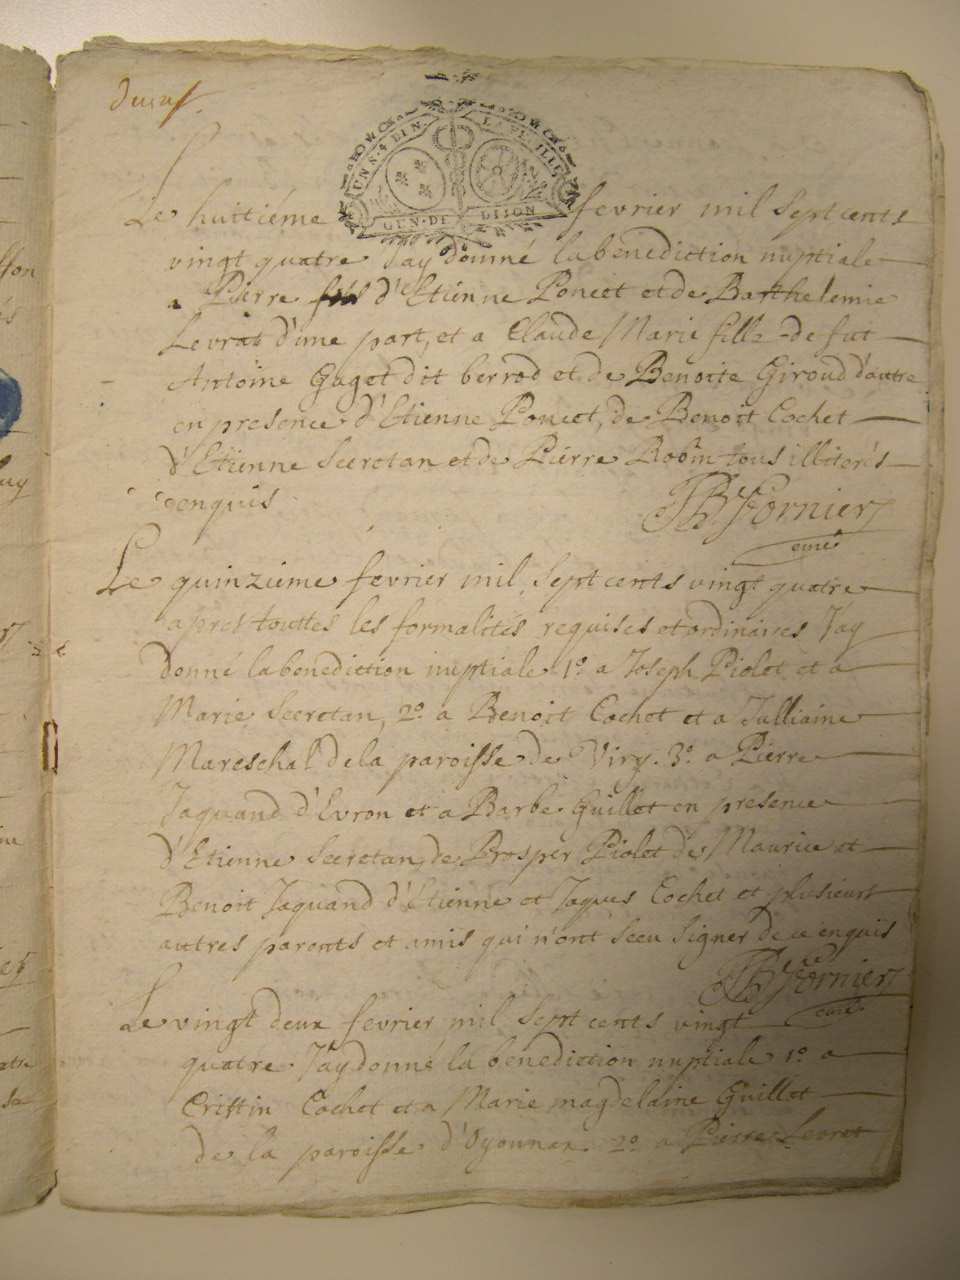 UN S. 4 DEN. LA FEUILLE
GEN. DE DIJON
Le huitiéme fevrier mil sept cents
vingt quatre J'ay donné la benediction nuptiale
a Pierre fils d'Etienne Poncet et de Barthelemie
Levrat d'une part, et a Claude Marie fille de fut
Antoine Gaget dit berrod et de Benoite Giroud d'autre
en presence d'Etienne Poncet, de Benoit Cochet
d'Etienne Secretan et de Pierre tous illiterés
enquis
JB Fornier
curé
Le quinzieme fevrier mil sept cents vingt quatre
apres touttes les formalités requises et ordinaires J'ay
donné la benediction nuptiale 1º a Joseph Piolet et a
Marie Secretan, 2º a Benoit Cochet et a Julliaine
Mareschal de la paroisse de Viry. 3º a Pierre
Jaquand d'Evron et a Barbe Guillot en presence
d'Etienne Secretan, de Prosper Piolet de Maurice et
Benoit Jaquand d'Etienne et Jaques Cochet et plusieurs
autres parents et amis qui n'ont sceu signer de ce enquis
JB Fornier
curé
Le vingt deux fevrier mil sept cents vingt
quatre J'ay donné la benediction nuptiale 1º a
Cristin Cochet et a Marie magdelaine Guillot
de la paroisse d'Oyonnax 2º a Pierre Levret